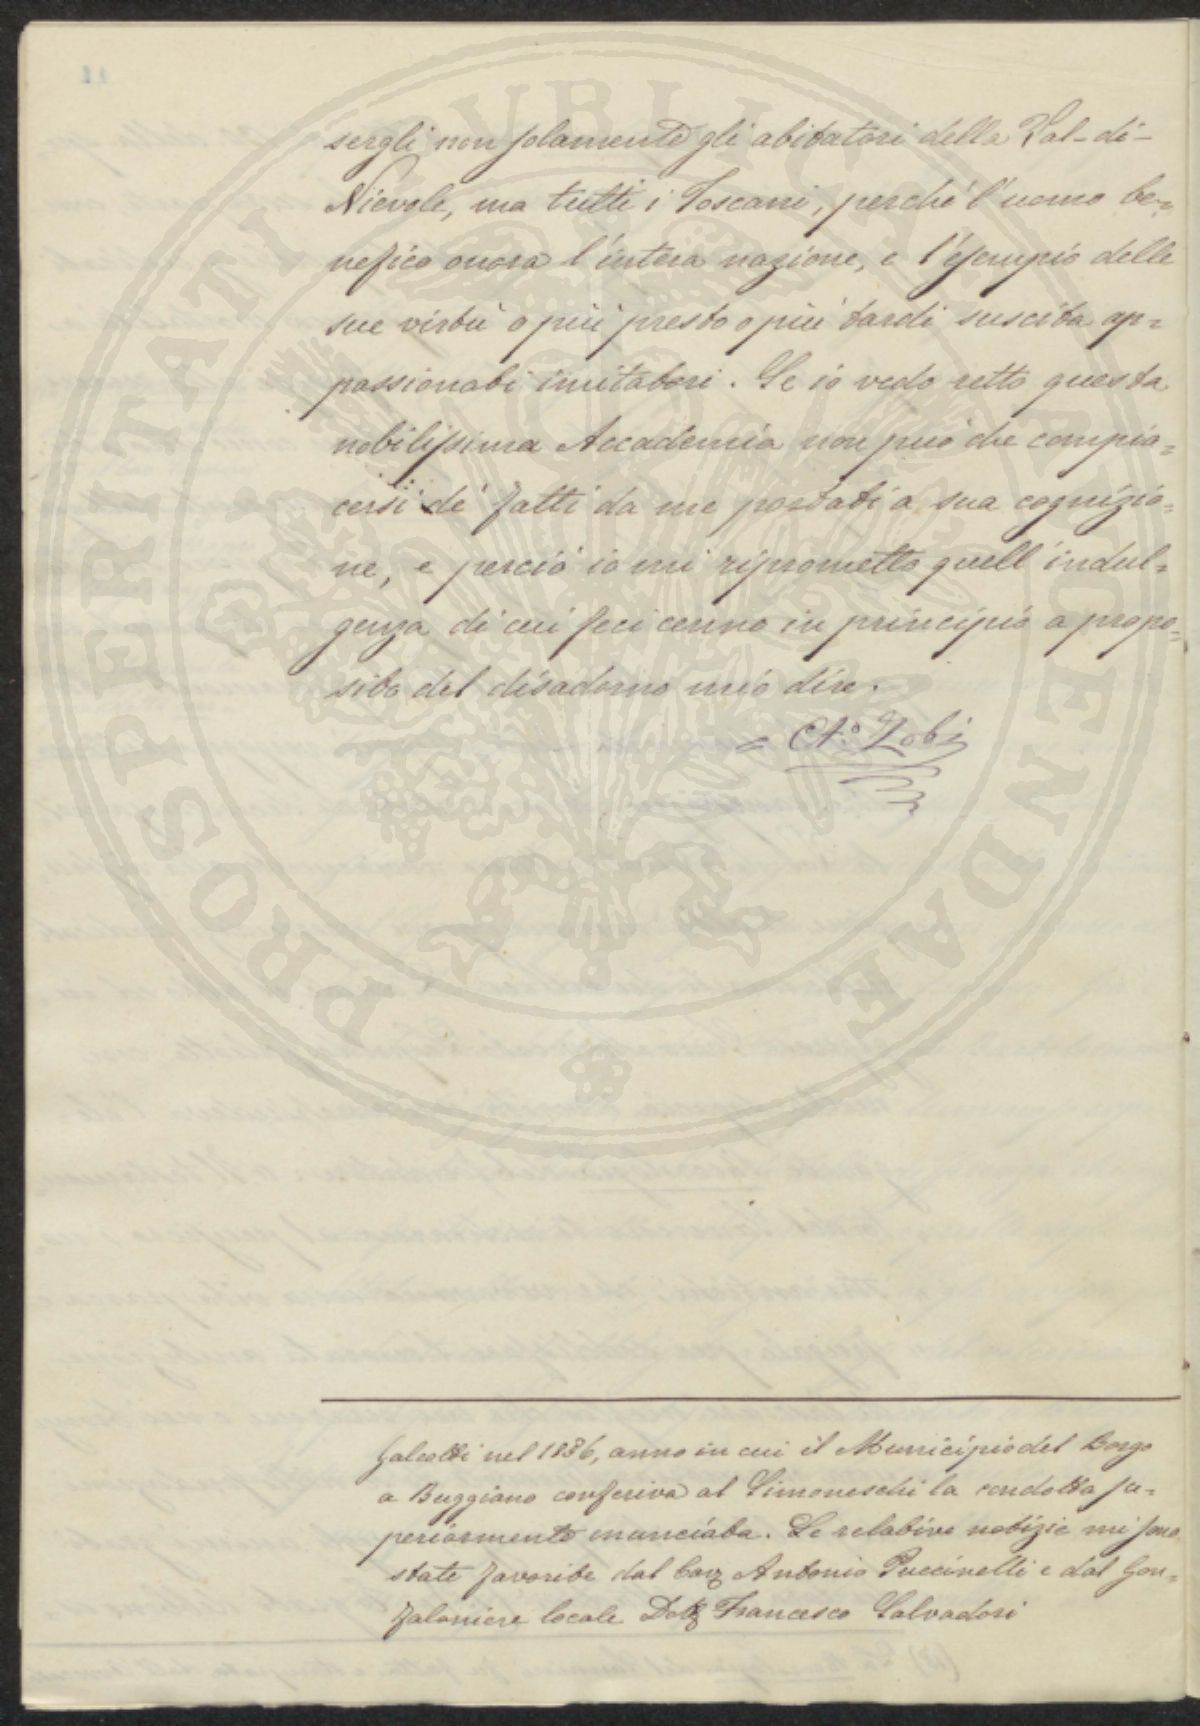 sergli non solamente gli abitatori della Val-di-
Nievole, ma tutti i Toscani, perché l'uomo be=
nefico onora l'intera nazione, e l'esempio delle
sue virtù o più presto o più tardi suscita ap=
passionati imitatori. Se io vedo retto questa
nobilissima Accademia non può che compia=
cersi de' fatti da me portati a sua cognizio=
ne, e perciò io mi riprometto quell'indul=
genza di cui feci cenno in principio a propo=
sito del disadorno mio dire.
Ao. Zobi
Galeotti nel 1836, anno in cui il Municipio del Borgo
a Buggiano conferiva al Simoneschi la condotta su=
periormente enunciata. Le relative notizie mi sono
state favorite dal Cav Antonio Puccinelli e dal Gon=
faloniere locale Dott Francesco Salvadori
PROSPERITATI PUBLICAE AUGENDAE